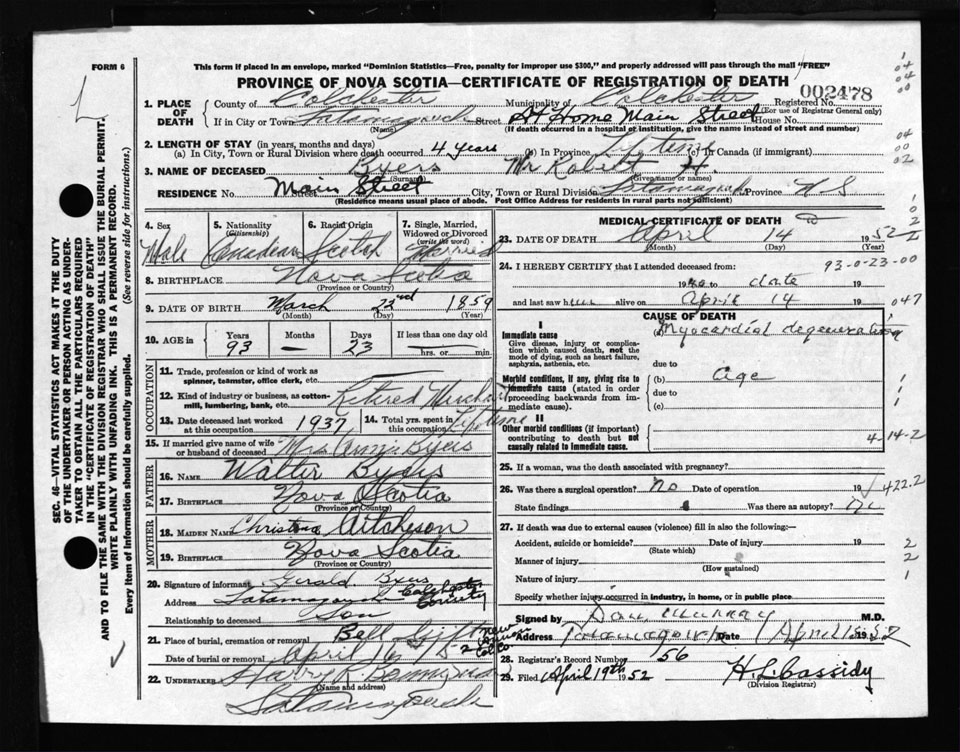 FORM 6
This form if placed in an envelope, marked "Dominion Statistics—Free, penalty for improper use $300," and properly addressed will pass through the mail "FREE"
PROVINCE OF NOVA SCOTIA—CERTIFICATE OF REGISTRATION OF DEATH
002478
1. PLACE OF DEATH County of Colchester Municipality of Colchester Registered No.
(For use of Registrar General only)
If in City or Town Tatamagouche Street At Home Main Street House No.
(Name) (If death occurred in a hospital or institution, give the name instead of street and number)
2. LENGTH OF STAY (in years, months and days)
(a) In City, Town or Rural Division where death occurred 4 years (b) In Province Lifetime (c) In Canada (if immigrant)
3. NAME OF DECEASED Byers Mr Robert H.
(Surname) (Given name or names)
RESIDENCE No. Main Street City, Town or Rural Division Tatamagouche Province N-S
(Residence means usual place of abode. Post Office Address for residents in rural parts not sufficient)
4. Sex 5. Nationality 6. Racial Origin 7. Single, Married, Widowed or Divorced
(Citizenship) (write the word)
Male Canadian Scotch Married
8. BIRTHPLACE Nova Scotia
(Province or Country)
9. DATE OF BIRTH March 23rd 1859
(Month) (Day) (Year)
10. AGE in Years Months Days If less than one day old
93 — 23 hrs. or min.
OCCUPATION
11. Trade, profession or kind of work as spinner, teamster, office clerk, etc.
12. Kind of industry or business, as cotton-mill, lumbering, bank, etc. Retired Merchant
13. Date deceased last worked at this occupation 1937 14. Total yrs. spent in this occupation Lifetime
15. If married give name of wife or husband of deceased Mrs Annie Byers
FATHER
16. NAME Walter Byers
17. BIRTHPLACE Nova Scotia
(Province or Country)
MOTHER
18. MAIDEN NAME Christena Aitcheson
19. BIRTHPLACE Nova Scotia
(Province or Country)
20. Signature of informant Gerald Byers
Address Tatamagouche Colchester County
Relationship to deceased Son
21. Place of burial, cremation or removal Bell New Annan Col. Co.
Date of burial or removal April 16
22. UNDERTAKER Harry R.
(Name and address)
Tatamagouche
MEDICAL CERTIFICATE OF DEATH
23. DATE OF DEATH April 14 1952
(Month) (Day) (Year)
93-0-23-00
24. I HEREBY CERTIFY that I attended deceased from:
19 to date 19
and last saw him alive on April 14 19
047
CAUSE OF DEATH
I
Immediate cause
Give disease, injury or complication which caused death, not the mode of dying, such as heart failure, asphyxia, asthenia, etc.
(a) Myocardial degeneration
due to
Morbid conditions, if any, giving rise to immediate cause (stated in order proceeding backwards from immediate cause).
(b) age
due to
(c)
II
Other morbid conditions (if important) contributing to death but not causally related to immediate cause.
4-14-2
25. If a woman, was the death associated with pregnancy?
26. Was there a surgical operation? No Date of operation 19
422.2
State findings Was there an autopsy? No
27. If death was due to external causes (violence) fill in also the following:—
Accident, suicide or homicide? Date of injury 19
(State which)
Manner of injury
(How sustained)
Nature of injury
Specify whether injury occurred in industry, in home, or in public place
Signed by Dan Murray M.D.
Address Tatamagouche Date April 1952
28. Registrar's Record Number 56
29. Filed April 19th 1952 H. L. Cassidy
(Division Registrar)
SEC. 46—VITAL STATISTICS ACT MAKES IT THE DUTY
OF THE UNDERTAKER OR PERSON ACTING AS UNDER-
TAKER TO OBTAIN ALL THE PARTICULARS REQUIRED
IN THE "CERTIFICATE OF REGISTRATION OF DEATH"
AND TO FILE THE SAME WITH THE DIVISION REGISTRAR WHO SHALL ISSUE THE BURIAL PERMIT.
WRITE PLAINLY WITH UNFADING INK. THIS IS A PERMANENT RECORD.
Every item of information should be carefully supplied. (See reverse side for instructions.)